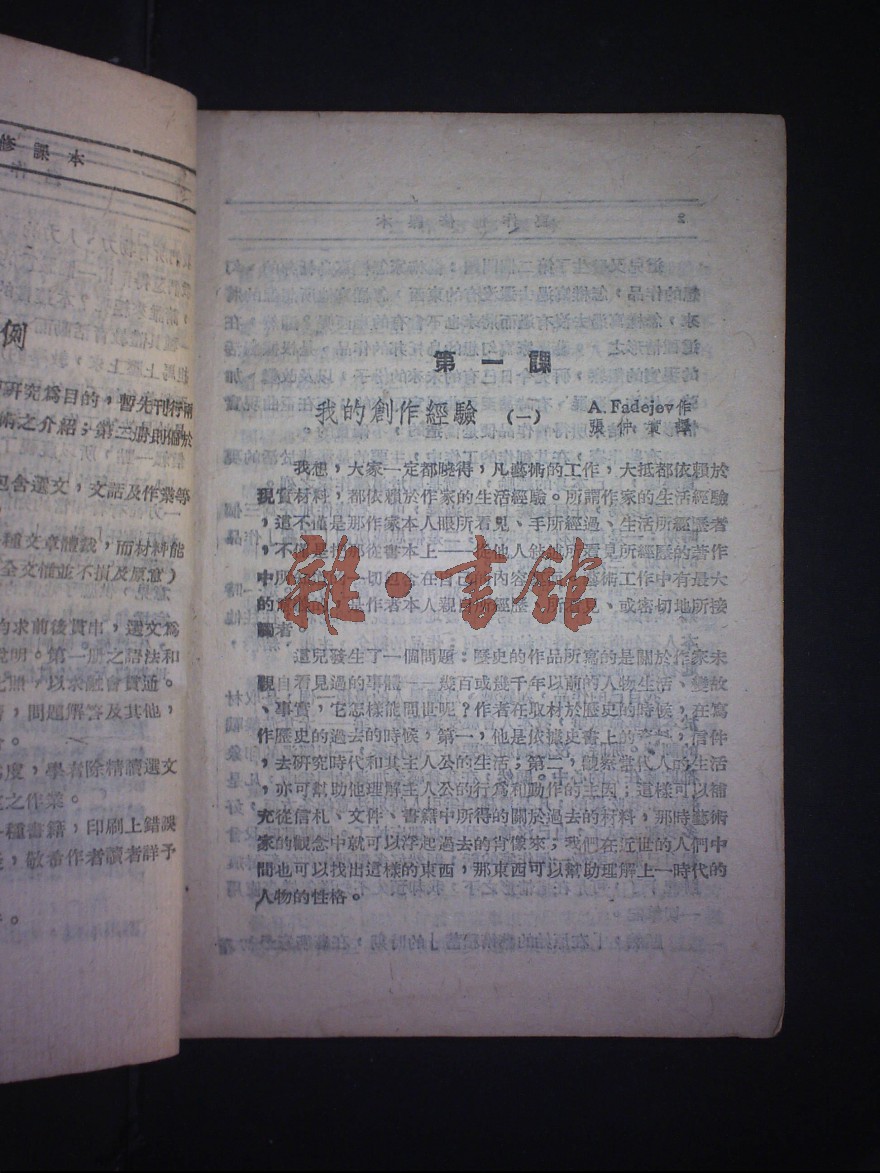 修課本
例
研究爲目的，暫先刊行兩
術之介紹；第三册則偏於
包含選文，文話及作業等
種文章體裁，而材料能
全文惟並不損及原意）
求前後貫串，選文爲
說明。第一册之語法和
，以求融會貫通。
，問題解答及其他，
度，學者除精讀選文
之作業。
種書籍，印刷上錯誤
，敬希作者讀者詳予
。
第一課
我的創作經驗（一）
A. Fadejev作
張仲 譯
我想，大家一定都曉得，凡藝術的工作，大抵都依賴於
現實材料，都依賴於作家的生活經驗。所謂作家的生活經驗
，這不僅是那作家本人眼所看見、手所經過、生活所經歷者
，不僅是指那從書本上——從他人 所看見所經歷的著作
中所 一切包含在自己的內容 藝術工作中有最大
的 ，是作者本人親自所經歷、所看見、或密切地所接
觸者。
這兒發生了一個問題：歷史的作品所寫的是關於作家未
親自看見過的事體——幾百或幾千年以前的人物生活、變故
、事實，它怎樣能問世呢？作者在取材於歷史的時候，在寫
作歷史的過去的時候，第一，他是依據史書上的 ，信件
，去研究時代和其主人公的生活；第二，觀察當代人的生活
，亦可幫助他理解主人公的行爲和動作的主因；這樣可以補
充從信札、文件、書籍中所得的關於過去的材料，那時藝術
家的觀念中就可以浮起過去的肖像來；我們在近世的人們中
間也可以找出這樣的東西，那東西可以幫助理解上一時代的
人物的性格。
雜·書館